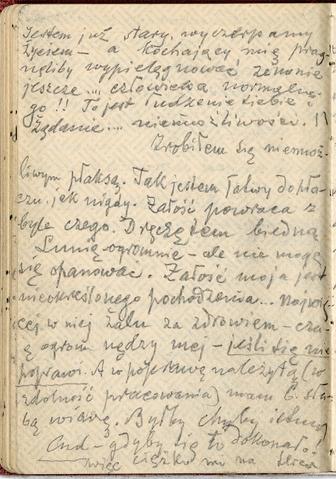 Jestem już stary, wyczerpany
życiem – a kochający mię prag
nęliby wypielęgnować ze mnie
jeszcze... człowieka normalne-
go!! To jest łudzenie siebie i
żądanie... niemożliwości!!
Zrobiłem się niemoż-
liwym płaksą. Tak jestem łatwy do pła-
czu, jak nigdy. Żałość powraca z
byle czego. Dręczę tem biedną
Lunię ogromnie – ale nie mogę
się opanować. Żałość moja jest
nieokreślonego pochodzenia... najwię
cej w niej żalu za zdrowiem – czu
ję ogrom nędzy mej – jeśli się nie
poprawi. A w poprawę należytą (w
zdolność pracowania) mam b. sła-
bą wiarę. Byłby chyba istny
Cud – gdyby się to dokonało!
więc ciężko mi na